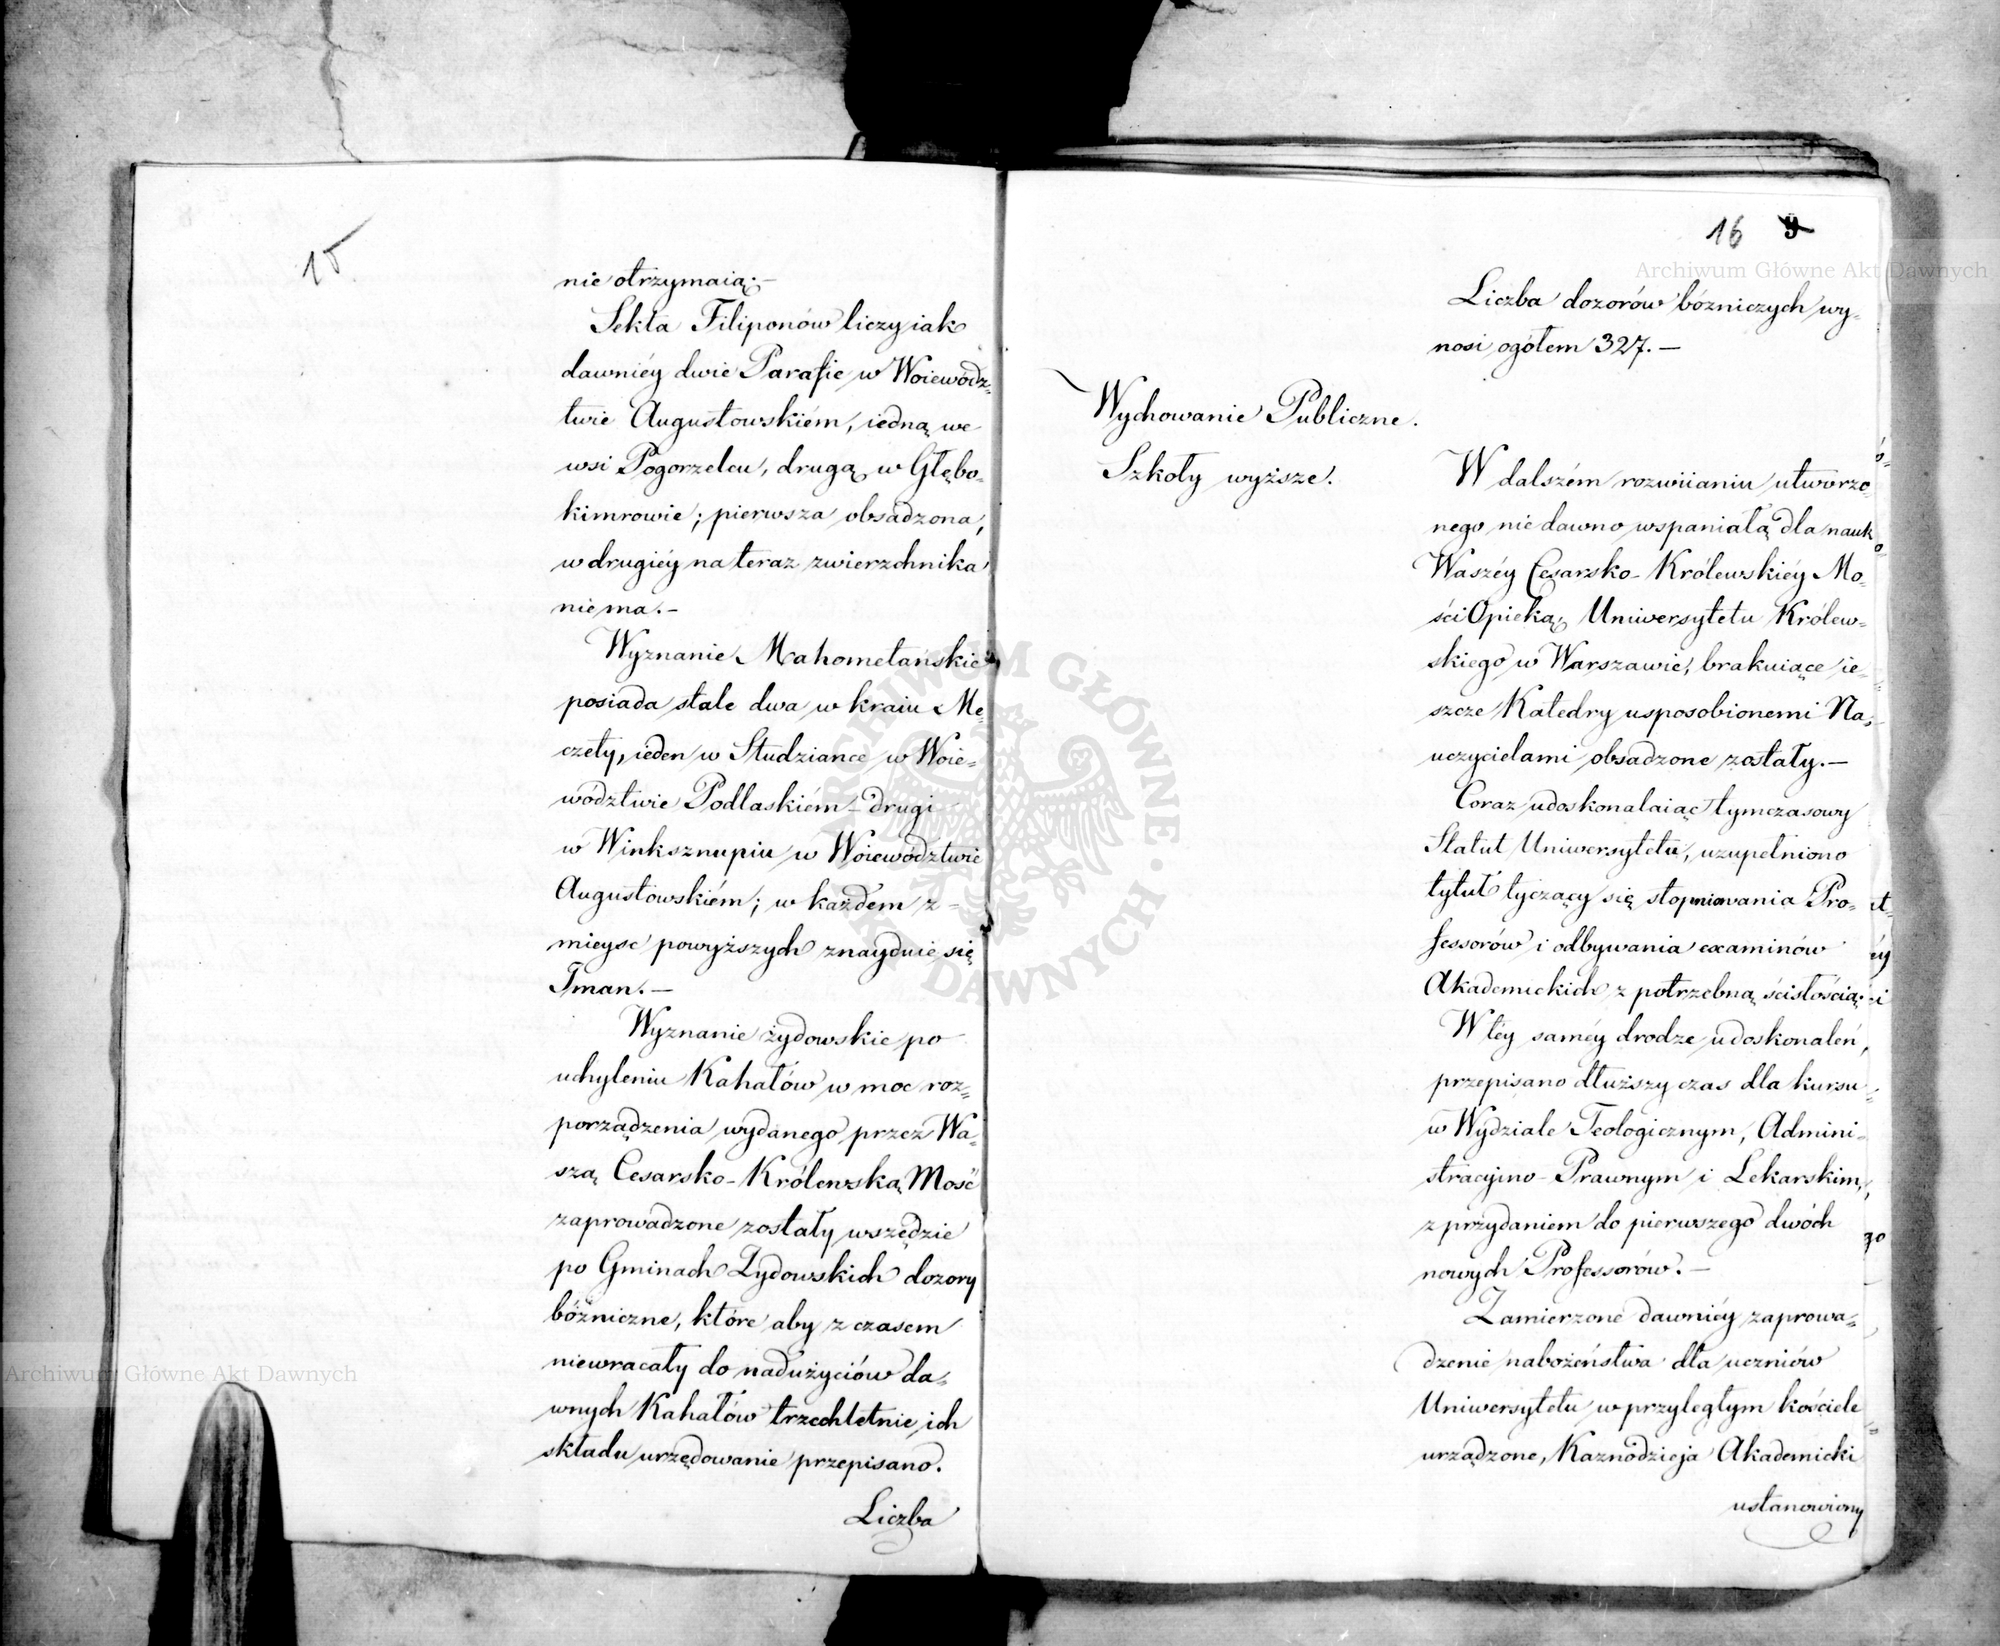 15
nie otrzymaią.—
Sekta Filiponów liczy iak
dawniéy dwie Parafie w Woiewódz=
twie Augustowskiém, iedną we
wsi Pogorzelcu, drugą w Głębo=
kimrowie; pierwsza obsadzona,
w drugiéy na teraz zwierzchnika
niema.—
Wyznanie Mahometańskie
posiada stale dwa w kraiu Me=
czety, ieden w Studziance w Woie=
wództwie Podlaskiém – drugi
w Winksznupiu w Woiewództwie
Augustowskiém; w każdem z –
mieysc powyższych znayduie się
Iman.—
Wyznanie żydowskie po
uchyleniu Kahałów w moc roz=
porządzenia wydanego przez Wa=
szą Cesarsko-Królewską Mość
zaprowadzone zostały wszędzie
po Gminach Żydowskich dozory
bóżniczne, które aby z czasem
niewracały do nadużyciów da=
wnych Kahałów trzechletnie ich
składu urzędowanie przepisano.
Liczba
16 9
Liczba dozorów bóżniczych wy=
nosi ogółem 327.—
Wychowanie Publiczne.
Szkoły wyższe.
W dalszém rozwiianiu utworzo=
nego nie dawno wspaniałą dla nauk
Waszéy Cesarsko-Królewskiéy Mo=
ści Opieką, Uniwersytetu Królew=
skiego w Warszawie, brakuiące ie=
szcze Katedry usposobionemi Na=
uczycielami obsadzone zostały.—
Coraz udoskonalaiąc tymczasowy
Statut Uniwersytetu, uzupełniono
tytuł tyczący się stopniowania Pro=
fessorów i odbywania examinów
Akademickich z potrzebną ścisłością.
W téy saméy drodze udoskonaleń,
przepisano dłuższy czas dla kursu
w Wydziale Teologicznym, Admini=
stracyino-Prawnym i Lekarskim,
z przydaniem do pierwszego dwóch
nowych Professorów.—
Zamierzone dawniéy zaprowa=
dzenie nabożeństwa dla uczniów
Uniwersytetu w przyległym kościele
urządzone, Kaznodzieja Akademicki
ustanowiony
Archiwum Główne Akt Dawnych
Archiwum Główne Akt Dawnych
ARCHIWUM GŁÓWNE AKT DAWNYCH